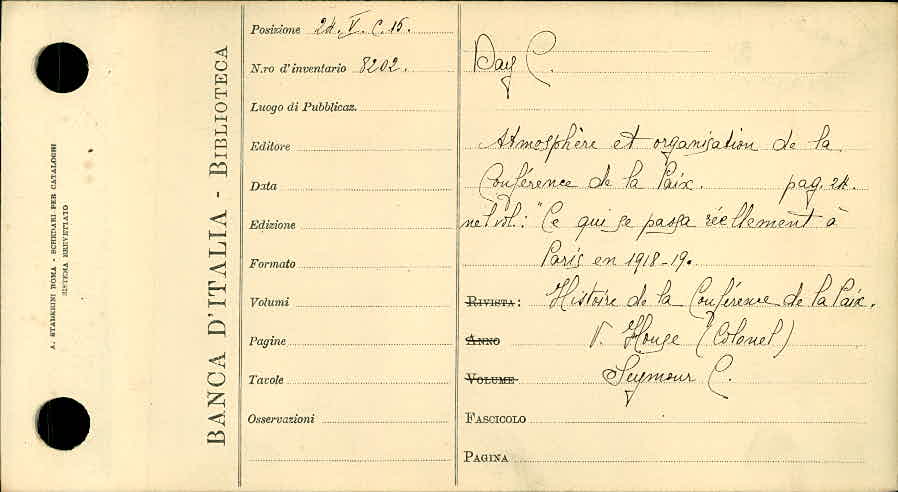 A. STADERINI ROMA - SCHEDARI PER CATALOGHI
SISTEMA BREVETTATO
BANCA D'ITALIA - BIBLIOTECA
Posizione 24. V. C. 15.
N.ro d'inventario 8202.
Luogo di Pubblicaz.
Editore
Data
Edizione
Formato
Volumi
Pagine
Tavole
Osservazioni
Day C.
Atmosphère et organisation de la
Conférence de la Paix. pag. 24.
nel vol.: "Ce qui se passa réellement à
Paris en 1918-19.
RIVISTA: Histoire de la Conférence de la Paix.
ANNO V. House (Colonel)
VOLUME Seymour C.
FASCICOLO
PAGINA